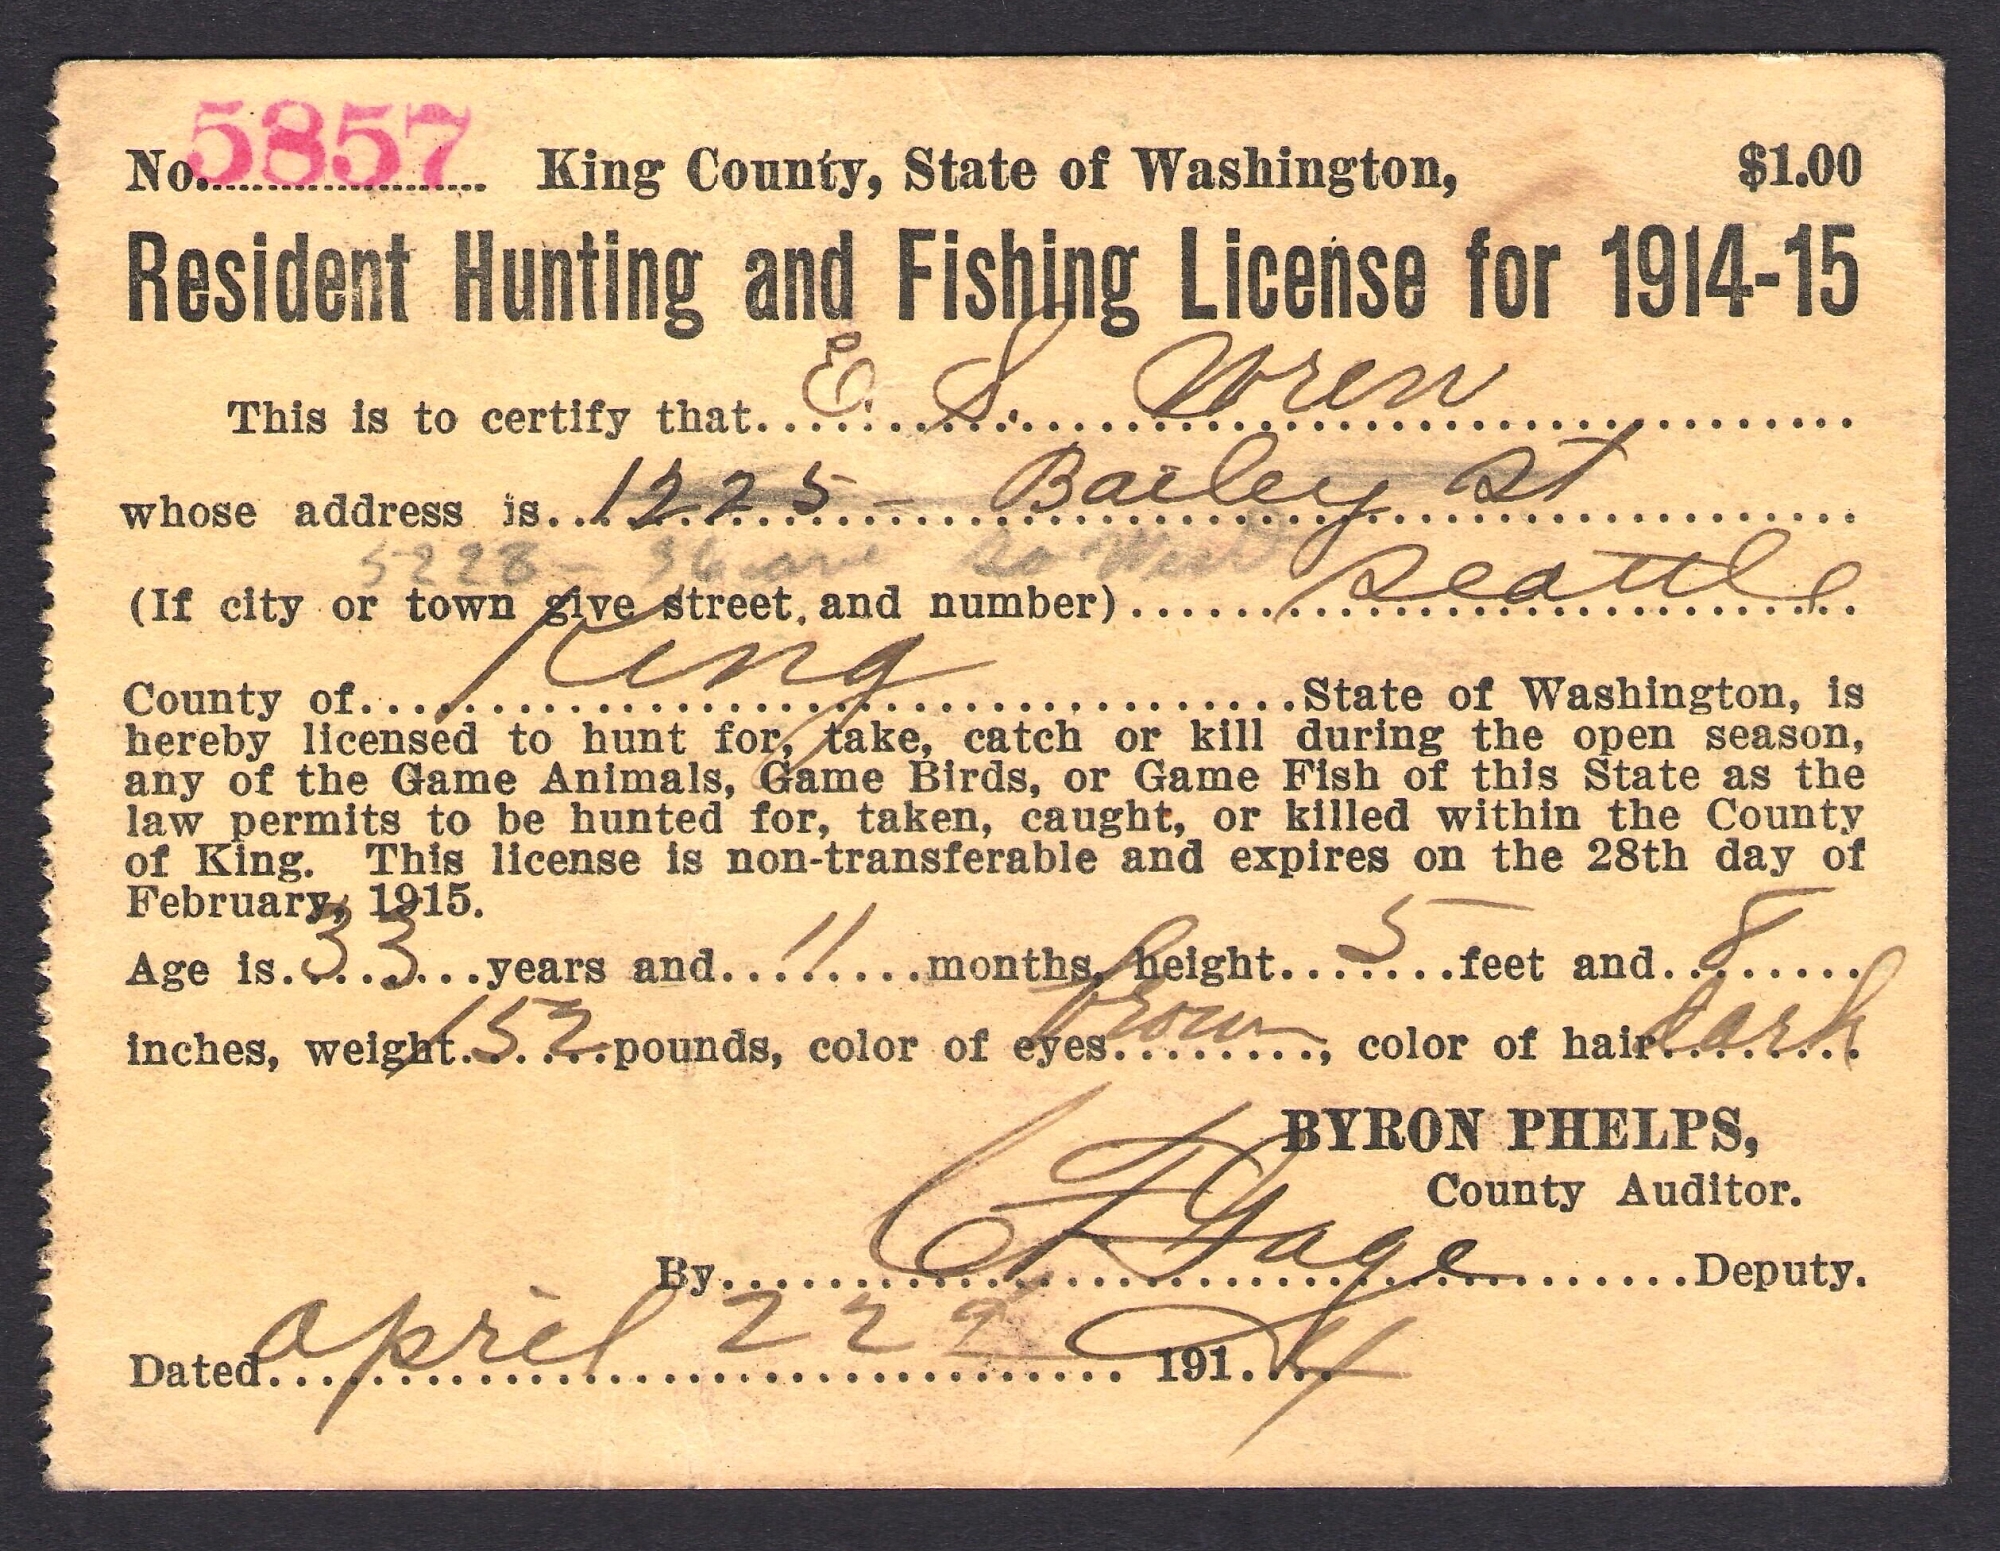 No. 5857 King County, State of Washington, $1.00
Resident Hunting and Fishing License for 1914-15
This is to certify that E. S. Wren
whose address is 1225 - Bailey St
5228 - 36 ave So West
(If city or town give street, and number) Seattle
County of King State of Washington, is
hereby licensed to hunt for, take, catch or kill during the open season,
any of the Game Animals, Game Birds, or Game Fish of this State as the
law permits to be hunted for, taken, caught, or killed within the County
of King. This license is non-transferable and expires on the 28th day of
February, 1915.
Age is 33 years and 11 months, height 5 feet and 8
inches, weight 152 pounds, color of eyes brown, color of hair dark
BYRON PHELPS,
County Auditor.
By Gage Deputy.
Dated April 22 1914